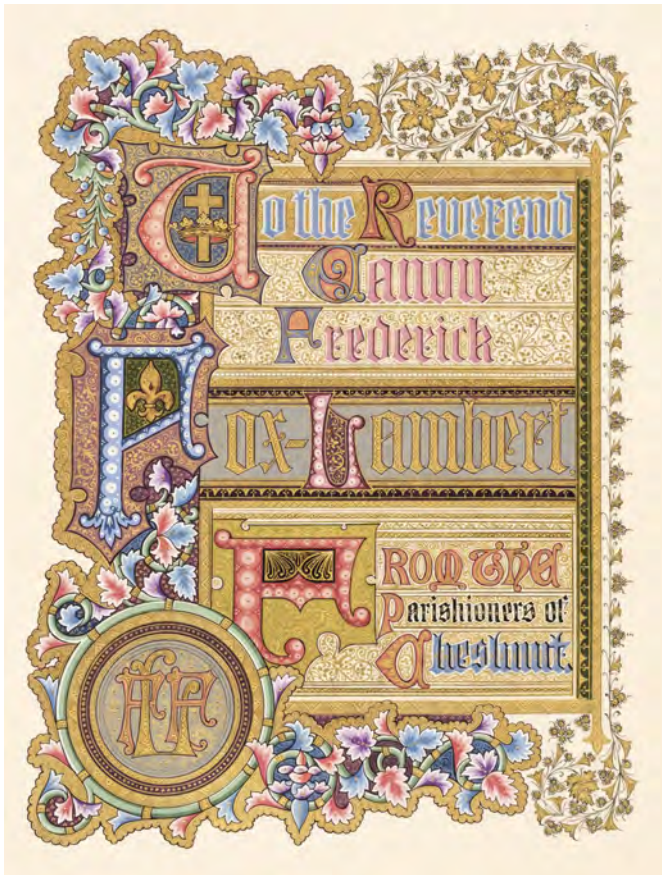 To the Reverend
Canon
Frederick
Fox-Lambert.
From the
Parishioners of
Cheshunt.